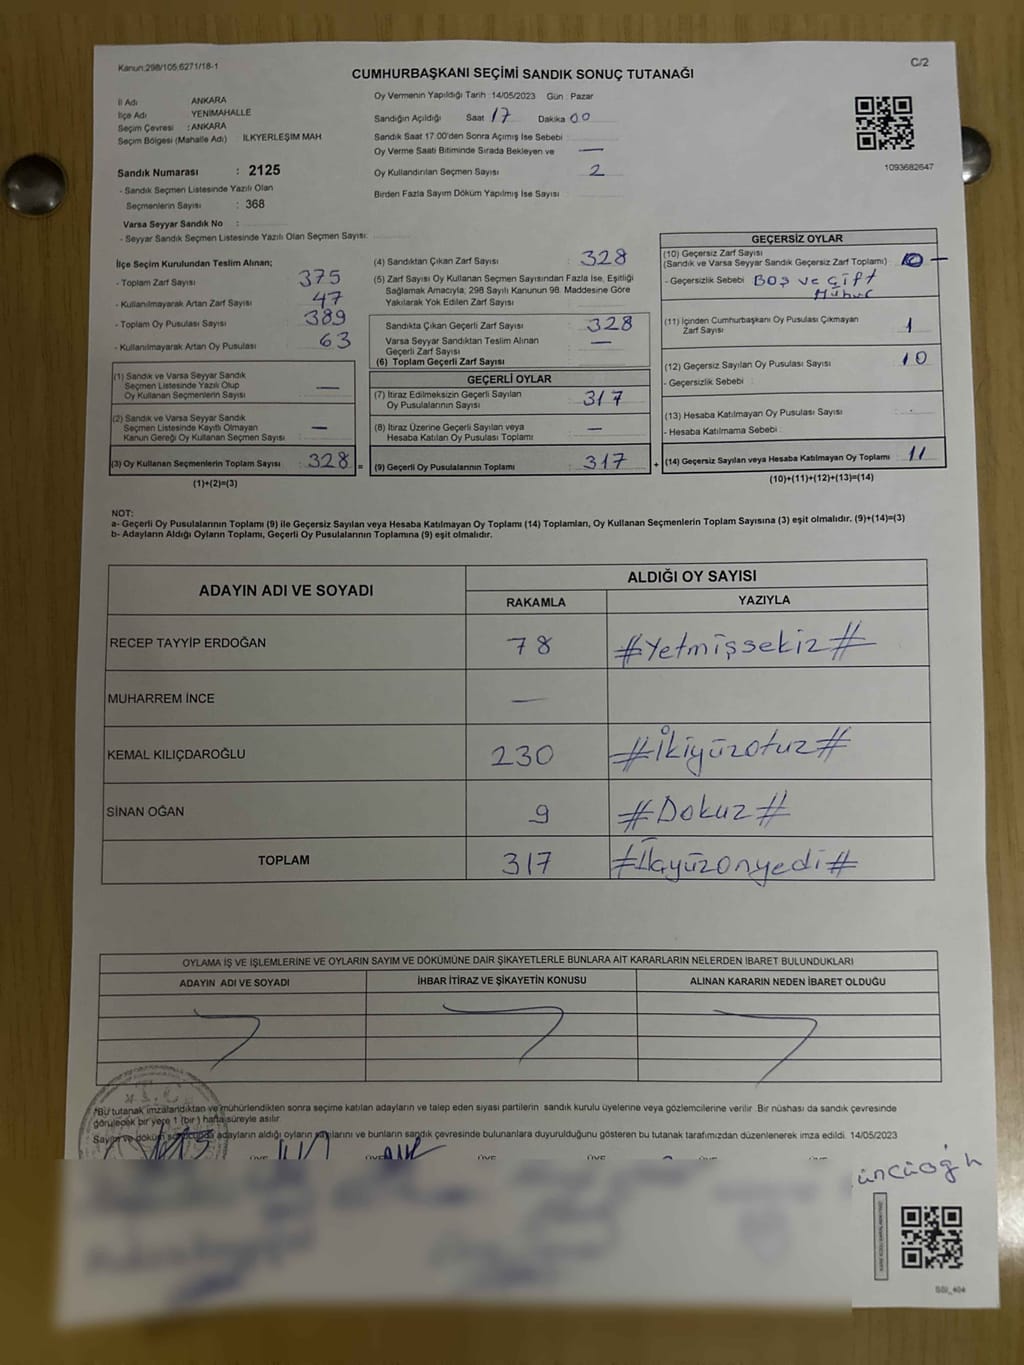 Kanun:298/105;6271/18-1
C/2
CUMHURBAŞKANI SEÇİMİ SANDIK SONUÇ TUTANAĞI
İl Adı ANKARA
İlçe Adı YENİMAHALLE
Seçim Çevresi : ANKARA
Seçim Bölgesi (Mahalle Adı) İLKYERLEŞİM MAH
Sandık Numarası : 2125
- Sandık Seçmen Listesinde Yazılı Olan
Seçmenlerin Sayısı : 368
Varsa Seyyar Sandık No :
- Seyyar Sandık Seçmen Listesinde Yazılı Olan Seçmen Sayısı:
Oy Vermenin Yapıldığı Tarih :14/05/2023 Gün : Pazar
Sandığın Açıldığı Saat 17 Dakika 00
Sandık Saat 17:00'den Sonra Açımış İse Sebebi :
Oy Verme Saati Bitiminde Sırada Bekleyen ve —
Oy Kullandırılan Seçmen Sayısı 2
Birden Fazla Sayım Döküm Yapılmış İse Sayısı :
1093682647
İlçe Seçim Kurulundan Teslim Alınan;
- Toplam Zarf Sayısı : 375
- Kullanılmayarak Artan Zarf Sayısı : 47
- Toplam Oy Pusulası Sayısı : 389
- Kullanılmayarak Artan Oy Pusulası : 63
(1) Sandık ve Varsa Seyyar Sandık
Seçmen Listesinde Yazılı Olup
Oy Kullanan Seçmenlerin Sayısı : —
(2) Sandık ve Varsa Seyyar Sandık
Seçmen Listesinde Kayıtlı Olmayan
Kanun Gereği Oy Kullanan Seçmen Sayısı : —
(3) Oy Kullanan Seçmenlerin Toplam Sayısı : 328 =
(1)+(2)=(3)
(4) Sandıktan Çıkan Zarf Sayısı : 328
(5) Zarf Sayısı Oy Kullanan Seçmen Sayısından Fazla İse, Eşitliği
Sağlamak Amacıyla; 298 Sayılı Kanunun 98. Maddesine Göre
Yakılarak Yok Edilen Zarf Sayısı :
Sandıkta Çıkan Geçerli Zarf Sayısı : 328
Varsa Seyyar Sandıktan Teslim Alınan
Geçerli Zarf Sayısı : —
(6) Toplam Geçerli Zarf Sayısı
GEÇERLİ OYLAR
(7) İtiraz Edilmeksizin Geçerli Sayılan
Oy Pusulalarının Sayısı : 317
(8) İtiraz Üzerine Geçerli Sayılan veya
Hesaba Katılan Oy Pusulası Toplamı : —
(9) Geçerli Oy Pusulalarının Toplamı : 317 +
GEÇERSİZ OYLAR
(10) Geçersiz Zarf Sayısı
(Sandık ve Varsa Seyyar Sandık Geçersiz Zarf Toplamı) : —
- Geçersizlik Sebebi : BOŞ ve Çift
Mühür
(11) İçinden Cumhurbaşkanı Oy Pusulası Çıkmayan
Zarf Sayısı : 1
(12) Geçersiz Sayılan Oy Pusulası Sayısı : 10
- Geçersizlik Sebebi :
(13) Hesaba Katılmayan Oy Pusulası Sayısı :
- Hesaba Katılmama Sebebi :
(14) Geçersiz Sayılan veya Hesaba Katılmayan Oy Toplamı : 11
(10)+(11)+(12)+(13)=(14)
NOT:
a- Geçerli Oy Pusulalarının Toplamı (9) ile Geçersiz Sayılan veya Hesaba Katılmayan Oy Toplamı (14) Toplamları, Oy Kullanan Seçmenlerin Toplam Sayısına (3) eşit olmalıdır. (9)+(14)=(3)
b- Adayların Aldığı Oyların Toplamı, Geçerli Oy Pusulalarının Toplamına (9) eşit olmalıdır.
ADAYIN ADI VE SOYADI
ALDIĞI OY SAYISI
RAKAMLA YAZIYLA
RECEP TAYYİP ERDOĞAN 78 #Yetmişsekiz#
MUHARREM İNCE —
KEMAL KILIÇDAROĞLU 230 #İkiyüzotuz#
SİNAN OĞAN 9 #Dokuz#
TOPLAM 317 #Üçyüzonyedi#
OYLAMA İŞ VE İŞLEMLERİNE VE OYLARIN SAYIM VE DÖKÜMÜNE DAİR ŞİKAYETLERLE BUNLARA AİT KARARLARIN NELERDEN İBARET BULUNDUKLARI
ADAYIN ADI VE SOYADI İHBAR İTİRAZ VE ŞİKAYETİN KONUSU ALINAN KARARIN NEDEN İBARET OLDUĞU
*Bu tutanak imzalandıktan ve mühürlendikten sonra seçime katılan adayların ve talep eden siyasi partilerin sandık kurulu üyelerine veya gözlemcilerine verilir. Bir nüshası da sandık çevresinde
görülecek bir yere 1 (bir) hafta süreyle asılır.
Sayım ve döküm sonucunda adayların aldığı oyların ve bunların sandık çevresinde bulunanlara duyurulduğunu gösteren bu tutanak tarafımızdan düzenlenerek imza edildi. 14/05/2023
ÜYE ÜYE ÜYE ÜYE